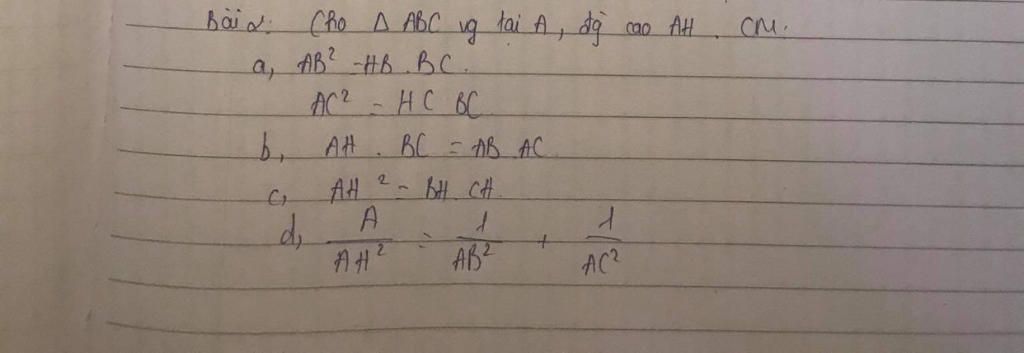 Bài 2: Cho Δ ABC vg tại A, đg cao AH. CM:
a, AB² = HB . BC.
AC² = HC BC
b, AH . BC = AB AC
c, AH² = BH . CH.
d, A/AH² = 1/AB² + 1/AC²